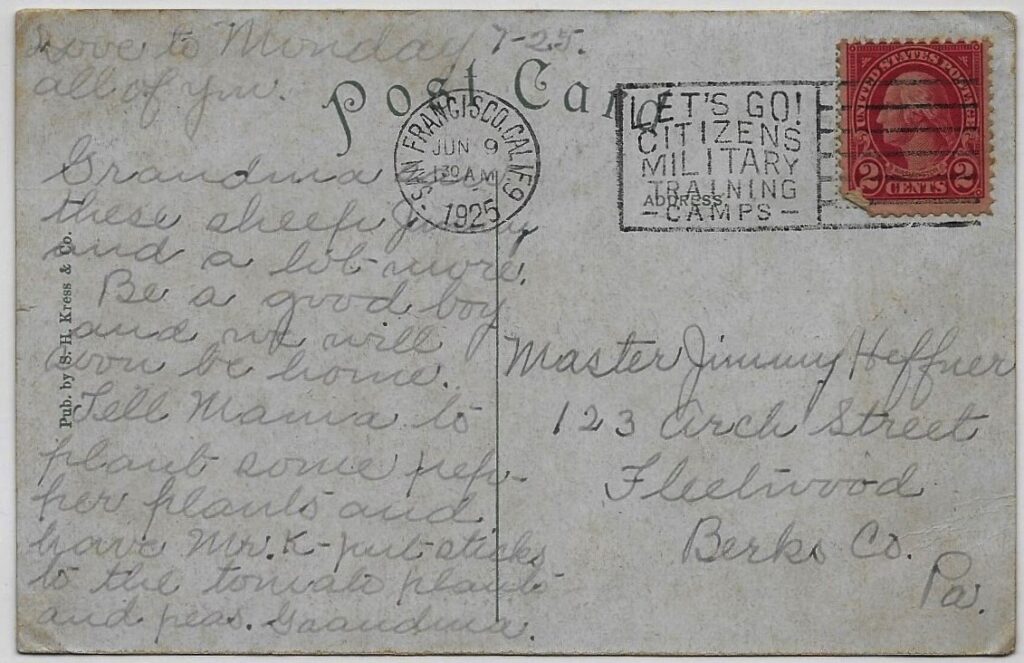 Love to Monday 7-25.
all of you.
Post Card
SAN FRANCISCO, CALIF. 9
JUN 9
130 AM
1925
LET'S GO!
CITIZENS
MILITARY
TRAINING
- CAMPS -
UNITED STATES POSTAGE
2 CENTS 2
ADDRESS
Grandma
these sheep Jimmy
and a lot more.
Be a good boy
and we will
soon be home.
Tell Mama to
plant some pep-
per plants and
have Mr. K- put sticks
to the tomato plants
and peas. Grandma.
Pub. by S. H. Kress & Co.
Master Jimmy Heffner
123 Arch Street
Fleetwood
Berks Co.
Pa.